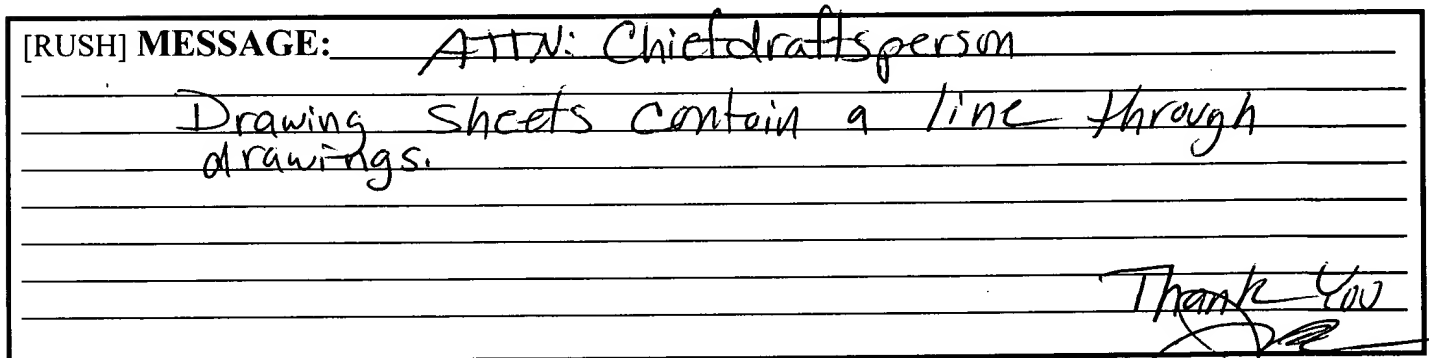 [RUSH] MESSAGE: ATTN: Chiefdraftsperson
Drawing sheets contain a line through
drawings.
Thank You